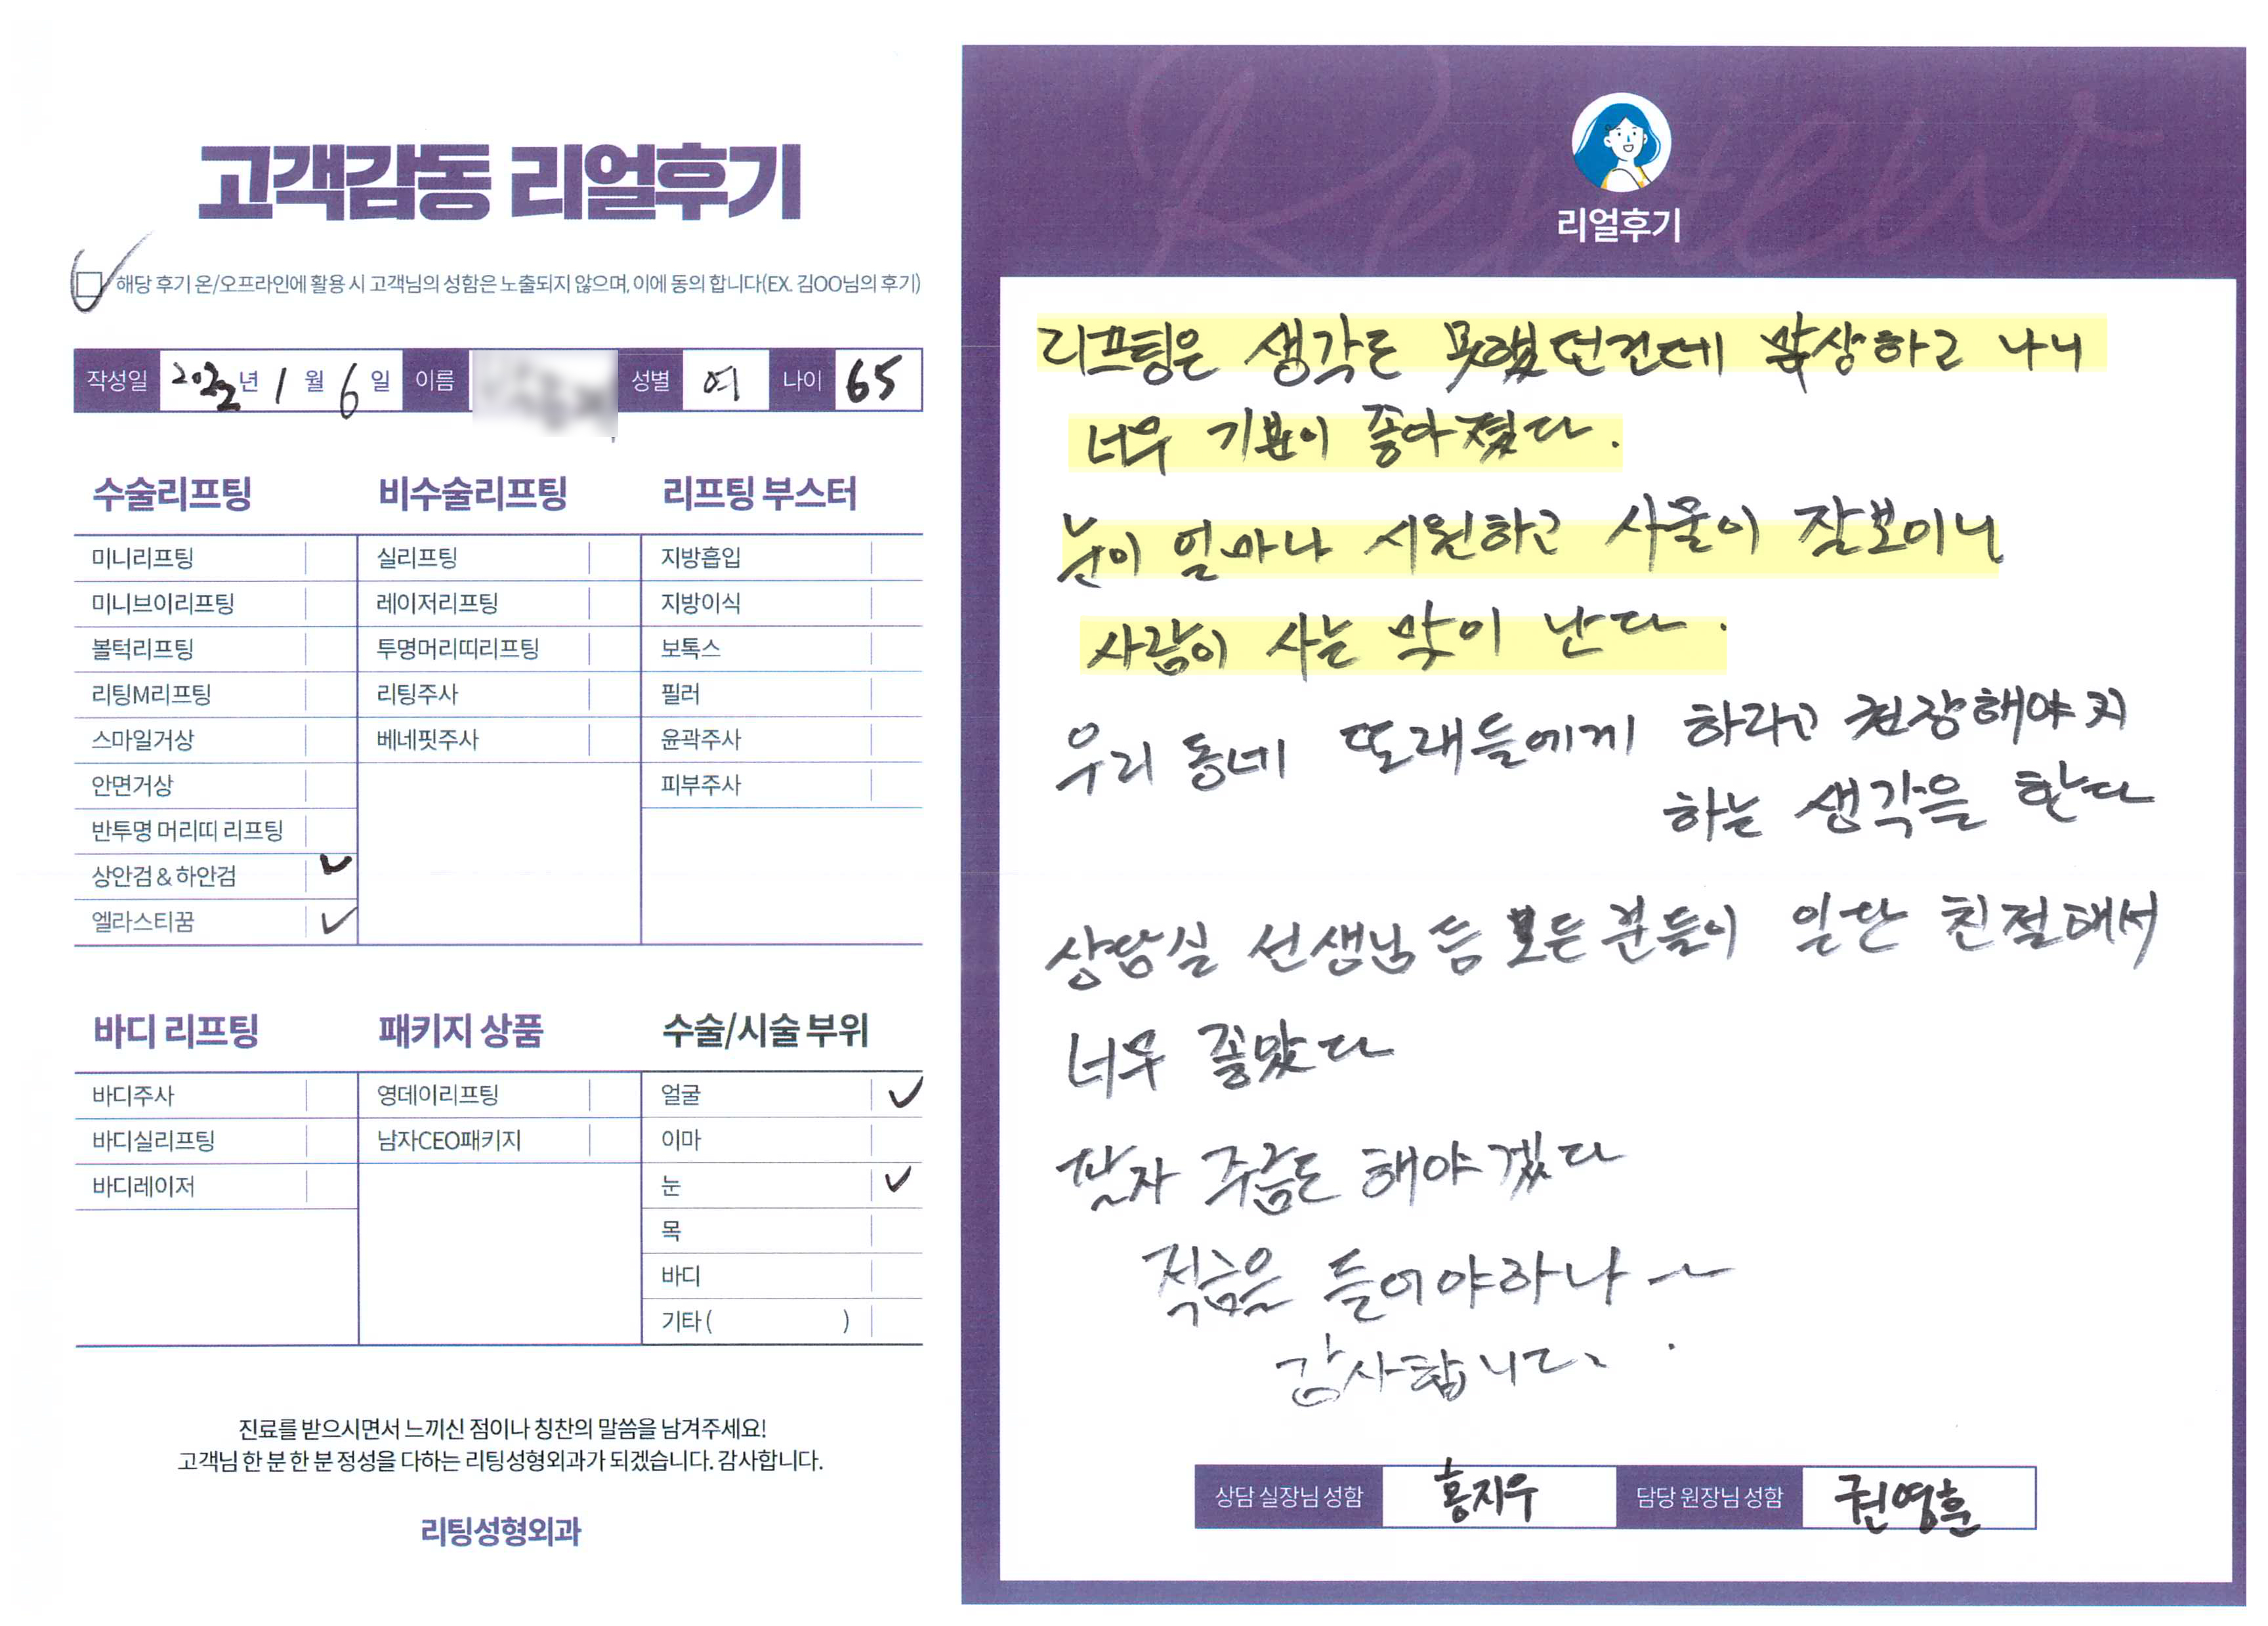 고객감동 리얼후기
해당 후기 온/오프라인에 활용 시 고객님의 성함은 노출되지 않으며, 이에 동의 합니다(EX. 김OO님의 후기)
작성일 2022년 1월 6일 이름 성별 여 나이 65
수술리프팅
미니리프팅
미니브이리프팅
볼턱리프팅
리팅M리프팅
스마일거상
안면거상
반투명 머리띠 리프팅
상안검 & 하안검
엘라스티꿈
비수술리프팅
실리프팅
레이저리프팅
투명머리띠리프팅
리팅주사
베네핏주사
리프팅 부스터
지방흡입
지방이식
보톡스
필러
윤곽주사
피부주사
바디 리프팅
바디주사
바디실리프팅
바디레이저
패키지 상품
영데이리프팅
남자CEO패키지
수술/시술 부위
얼굴
이마
눈
목
바디
기타 ( )
진료를 받으시면서 느끼신 점이나 칭찬의 말씀을 남겨주세요!
고객님 한 분 한 분 정성을 다하는 리팅성형외과가 되겠습니다. 감사합니다.
리팅성형외과
Review
리얼후기
리프팅은 생각도 못했던건데 막상하고 나니
너무 기분이 좋아졌다.
눈이 얼마나 시원하고 사물이 잘보이니
사람이 사는 맛이 난다.
우리 동네 또래들에게 하라고 권장해야지
하는 생각을 한다
상담실 선생님 등 모든 분들이 일단 친절해서
너무 좋았다
팔자 주름도 해야겠다
적금을 들어야하나~
감사합니다.
상담 실장님 성함 홍지우 담당 원장님 성함 권영훈